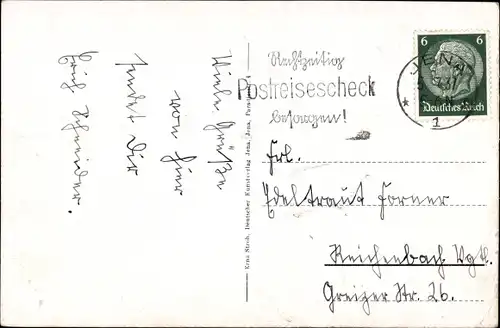 Viele Grüße
von hier
sendet Dir
Erich Schneider.
Ernst Stauch, Deutscher Kunstverlag Jena, Jena,
Rechtzeitig
Postreisescheck
besorgen!
JENA
1
6
Deutsches Reich
Frl.
Edeltraut Forner
Reichenbach Vgtl.
Greizer Str. 26.